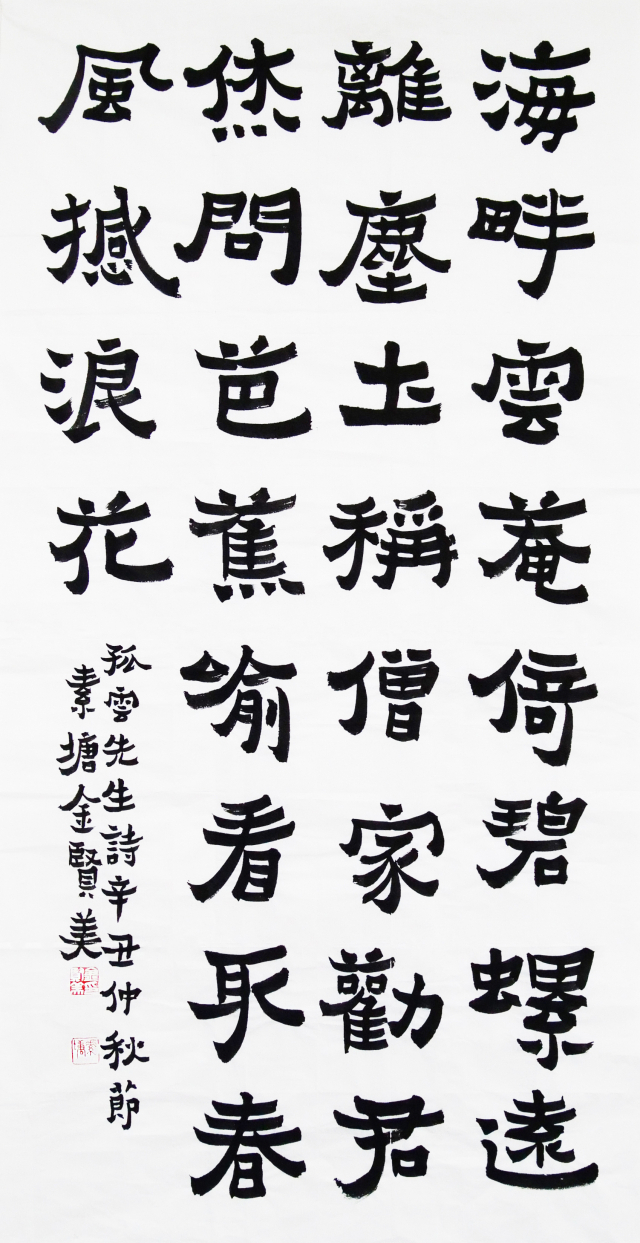 海畔雲菴倚碧螺遠
離塵土稱僧家勸君
烋問芭蕉喩看取春
風撼浪花
孤雲先生詩辛丑仲秋節
素塘金賢美